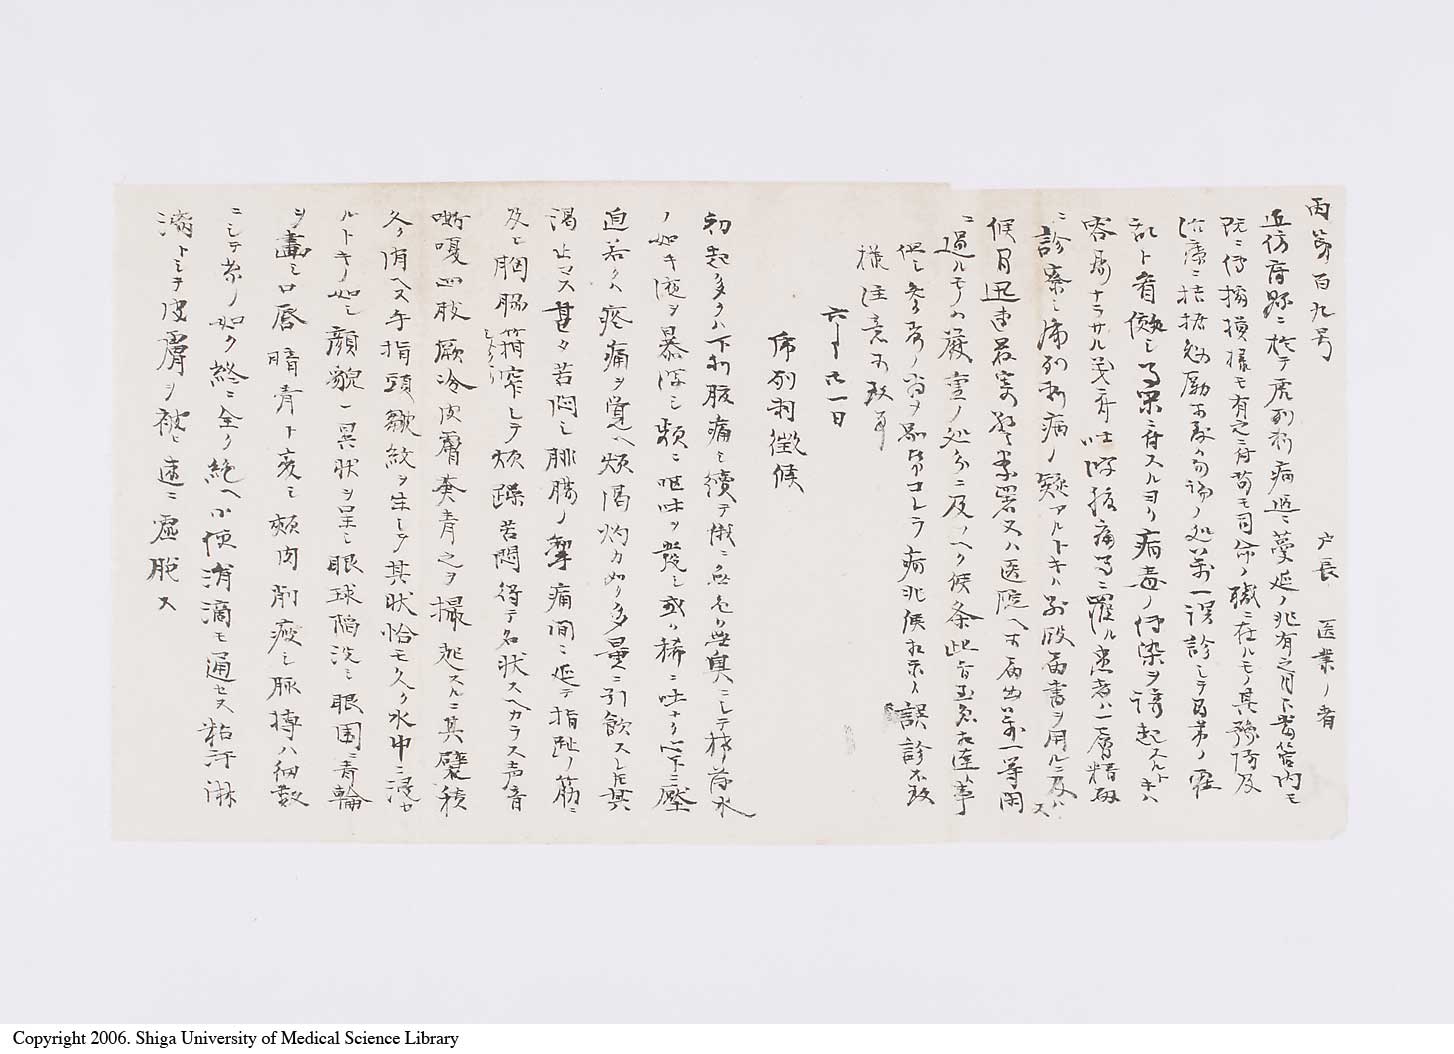 丙第百九号
戸長 医業ノ者
近傍府県ニ於テ虎列剌病漸ニ蔓延ノ兆有之月下当管内モ
既ニ伝播模様モ有之候苟モ司命ノ職ニ在ルモノ其予防及
治療ニ拮据勉励可致ハ勿論ノ処万一誤診シテ
ト看做シ等閑ニ付スルヨリ病毒ノ伝染ヲ誘起スルトキハ
不容易ナラサル義ニ付吐瀉腹痛等ニ罹ル患者ハ一層精密
ニ診察シ虎列剌病ノ疑アルトキハ別段届書ヲ用ルニ及ハス
候間迅速最寄警察署又ハ医院ヘ可届出万一等閑
ニ過ルモノハ厳重ノ処分ニ及フヘク候条此旨至急相達候事
但シ参考ノ為メ別紙コレラ病兆候相示シ誤診不致
様注意可致事
六月廿一日
虎列剌徴候
初起多クハ下利腹痛シ続テ俄ニ無色無臭ニシテ米泔水
ノ如キ液ヲ暴瀉シ頻ニ嘔吐ヲ発シ或ハ稀ニ吐ナク心下ニ壓
迫若クハ疼痛ヲ覚ヘ煩渇灼カ如ク多量ニ引飲スレ𪜈其
渇止マス甚タ苦悶シ腓腸ノ攣痛間ニ延テ指趾ノ筋ニ
及ヒ胸腸搾窄シテ煩躁苦悶得テ名状スヘカラス声音
嘶嗄四肢厥冷皮膚青之ヲ撮起スルニ其襞積
久ク消ヘス手指頭皺紋ヲ生シテ其状恰モ久ク水中ニ浸セ
ルトキノ如シ顔貌一異状ヲ呈シ眼球陥没シ眼囲ニ青輪
ヲ畫シ口唇暗青ト変シ頬肉削痩シ脈搏ハ細数
ニシテ糸ノ如ク終ニ全ク絶ヘ小便涓滴モ通セス粘汗淋
漓トシテ皮膚ヲ被ヒ速ニ虚脱ス
Copyright 2006. Shiga University of Medical Science Library